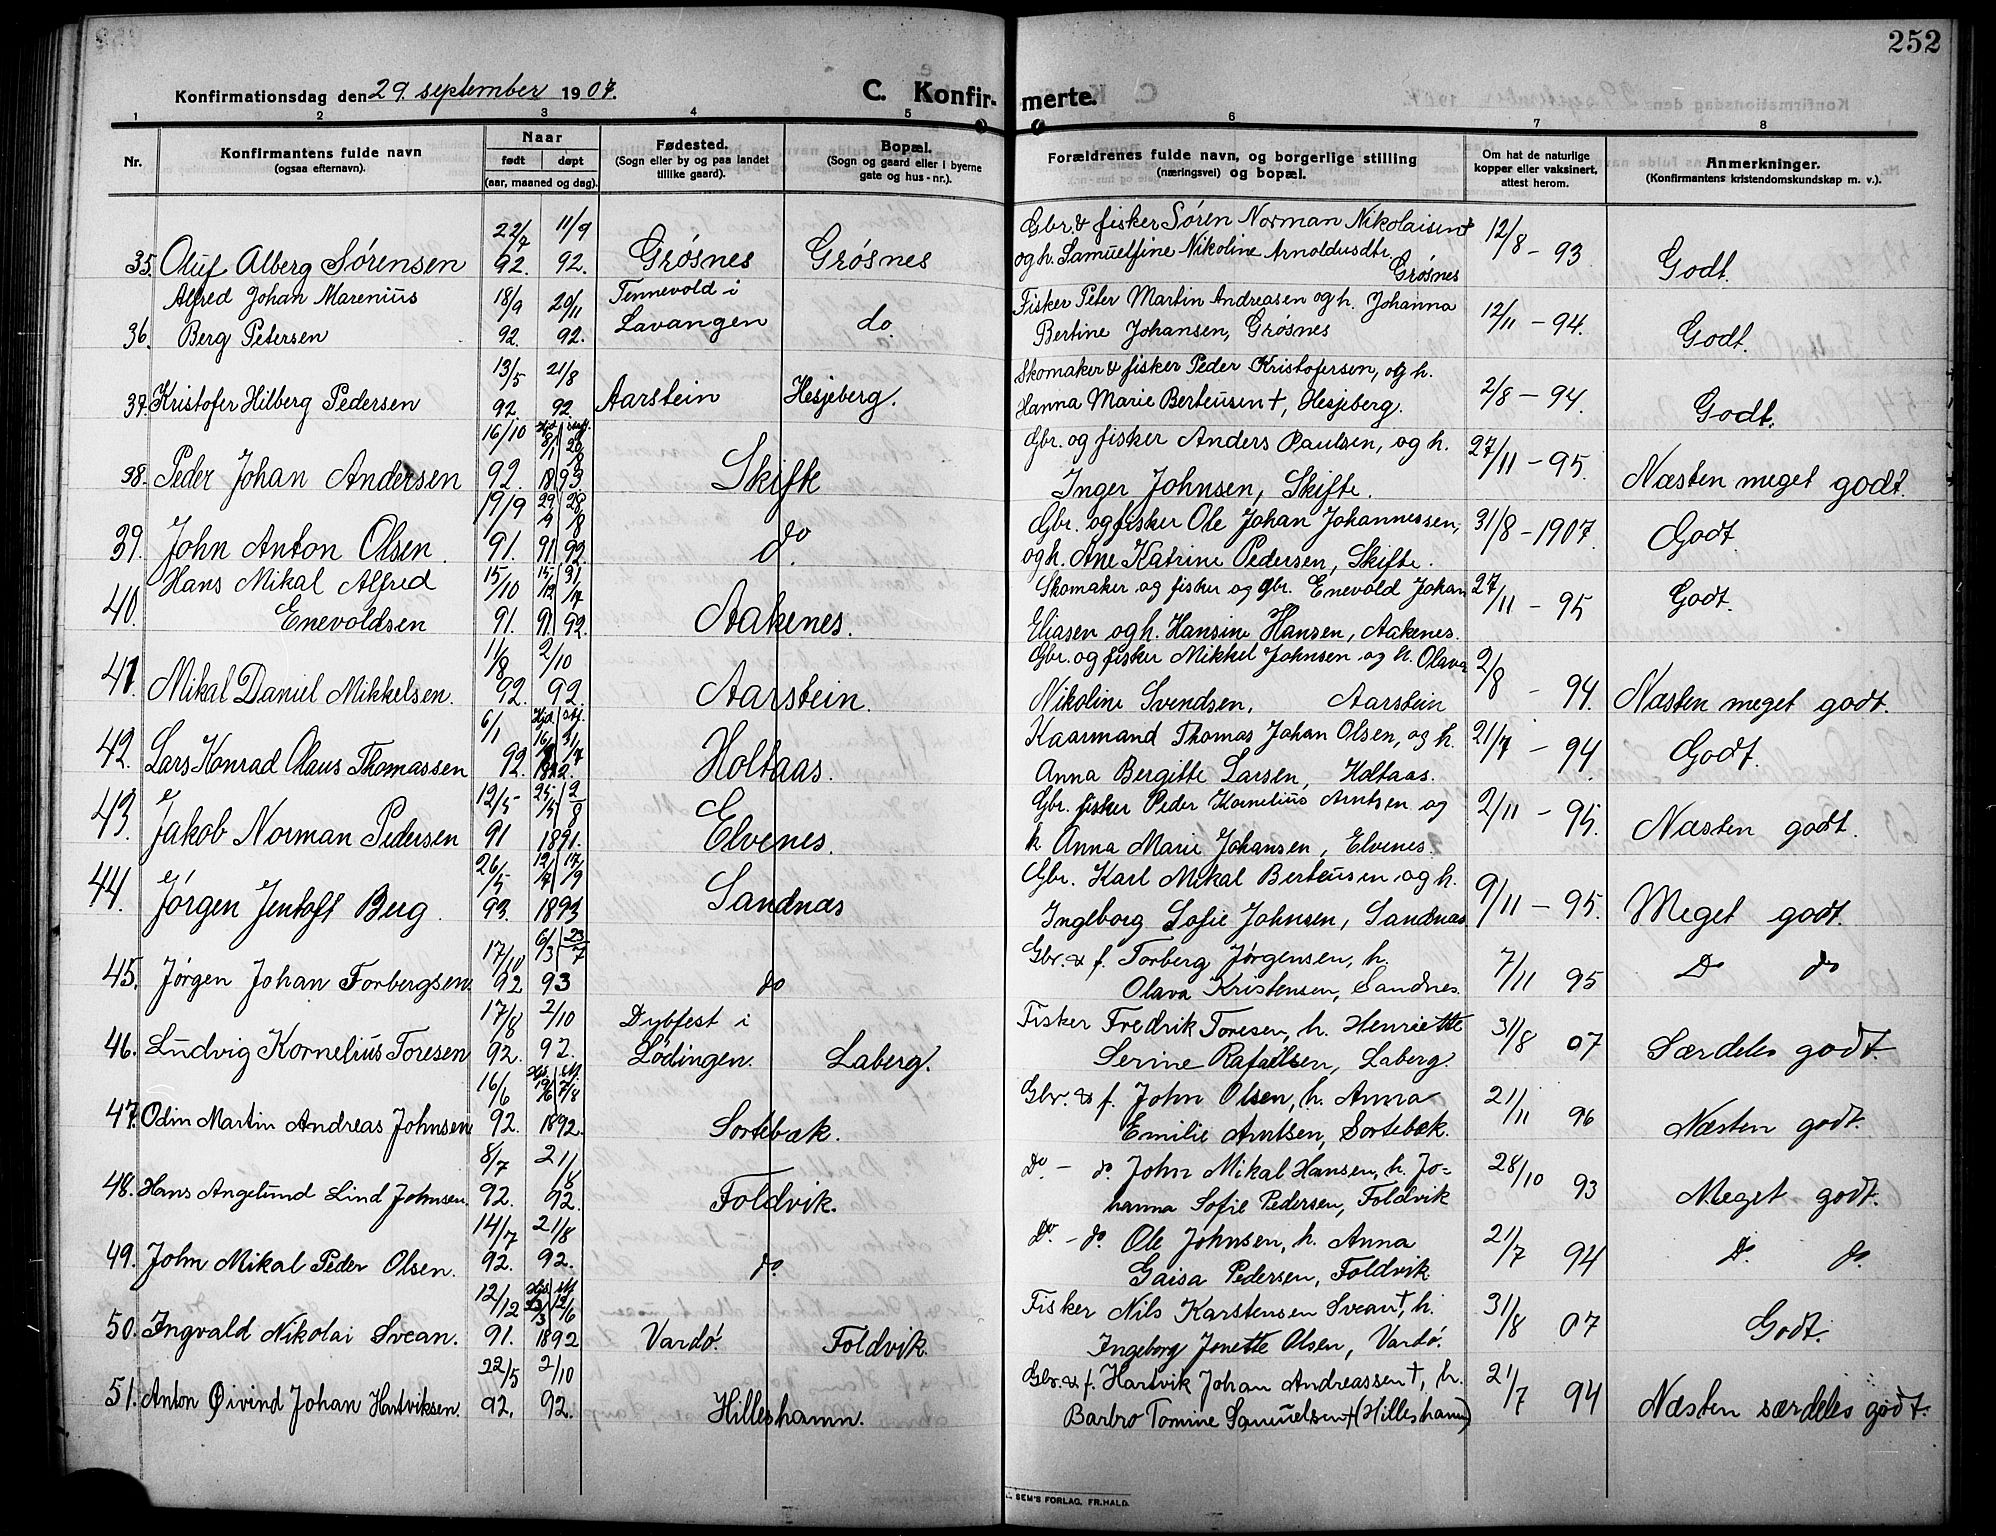 252
Konfirmationsdag den 29. september 1907.
C. Konfirmerte.
1 2 3 4 5 6 7 8
Nr.
Konfirmantens fulde navn
(ogsaa efternavn).
Naar
født døpt
(aar, maaned og dag).
Fødested.
(Sogn eller by og paa landet
tillike gaard).
Bopæl.
(Sogn og gaard eller i byerne
gate og hus-nr.).
Forældrenes fulde navn, og borgerlige stilling
(næringsvei) og bopæl.
Om hat de naturlige
kopper eller vaksinert,
attest herom.
Anmerkninger.
(Konfirmantens kristendomskundskap m. v.).
22/7 11/9 Gbr. & fisker Søren Norman Nikolaisen† 12/8 - 93
35. Oluf Alberg Sørensen 92. 92. Grøsnes Grøsnes og h. Samueline Nikoline Arnoldusdtr. Grøsnes Godt.
Alfred Johan Marenius 18/9 20/11 Tennevold i Fisker Peter Martin Andreasen og h. Johanna 12/11 - 94.
36. Berg Petersen 92. 92. Lavangen do. Bertine Johansen, Grøsnes Godt.
13/5 21/8 Skomaker & fisker Peder Kristofersen, og h.
37. Kristofer Hilberg Pedersen 92. 92. Aarstein Hesjeberg. Hanna Marie Berteusen†, Hesjeberg. 2/8 - 94. Godt.
16/10 8/1 Gbr. og fisker Anders Paulsen, og h. 27/11 - 95.
38. Peder Johan Andersen 92. 1893 Skifte Inger Johnsen, Skifte. Næsten meget godt.
19/9 Gbr. og fisker Ole Johan Johannessen, 31/8 - 1907.
39. John Anton Olsen. 91. 91. 92. do. og h. Ane Katrine Pedersen, Skifte. Godt.
Hans Mikal Alfred 15/10 15/12 31/7 Skomaker og fisker og gbr. Enevold Johan 27/11 - 95
40. Enevoldsen 91. 91. 92. Aakenes. Eliasen og h. Hansine Hansen, Aakenes. Godt.
11/8 2/10 Gbr. og fisker Mikkel Johnsen og h. Olava 2/8 - 94.
41. Mikal Daniel Mikkelsen. 92. 92. Aarstein. Nikoline Svendsen, Aarstein Næsten meget godt.
6/1 Kaarmand Thomas Johan Olsen, og h. 21/7 - 94.
42. Lars Konrad Olaus Thomassen 92. 1892. Holtaas. Anna Bergitte Larsen, Holtaas. Godt.
12/5 25/5 2/8 Gbr. fisker Peder Kornelius Arntsen og 2/11 - 95.
43. Jakob Norman Pedersen 91 1891. Elvenes. h Anna Marie Johansen, Elvenes. Næsten godt.
26/5 17/9 Gbr. Karl Mikal Berteusen og h. 9/11 - 95.
44. Jørgen Jentoft Berg. 93. 1893 Sandnæs Ingeborg Sofie Johnsen, Sandnæs Meget godt.
17/10 6/3 23/7 Gbr. & f. Torberg Jørgensen, h. 7/11 95
45. Jørgen Johan Torbergsen. 92 93 do Olava Kristensen, Sandnes. Do do
17/8 2/10 Dybfest i Fisker Fredrik Toresen, h. Henriette 31/8 07
46. Ludvig Kornelius Toresen 92. 92. Lødingen. Laberg. Serine Rafaelsen, Laberg. Særdeles godt
16/6 19/6 7/8 Gbr. & f. John Olsen, h. Anna 21/11 96
47. Odin Martin Andreas Johnsen 92. 1892. Sortebæk. Emilie Arntsen, Sortebæk. Næsten godt.
8/7 21/8 Do - do. John Mikal Hansen, h. Jo= 28/10 93
48. Hans Angelund Lind Johnsen. 92. 92. Foldvik. hanna Sofie Pedersen, Foldvik Meget godt.
14/7 21/8 Do. - do. Ole Johnsen, h. Anna 21/7 94
49. John Mikal Peder Olsen. 92. 92. do. Gaisa Pedersen, Foldvik Do. do.
12/12 13/3 12/6 Fisker Nils Karstensen Svean†, h. 31/8 07
50. Ingvald Nikolai Svean. 91. 1892 Vardø. Foldvik. Ingeborg Jonette Olsen, Vardø. Godt.
22/5 2/10 Gbr. & f. Hartvik Johan Andreassen†, h. 21/7 94
51. Anton Øivind Johan Hartviksen. 92. 92. Hilleshamn. Barbro Tomine Samuelsen† (Hilleshamn) Næsten særdeles godt.
SEM'S FORLAG, FR.HALD.